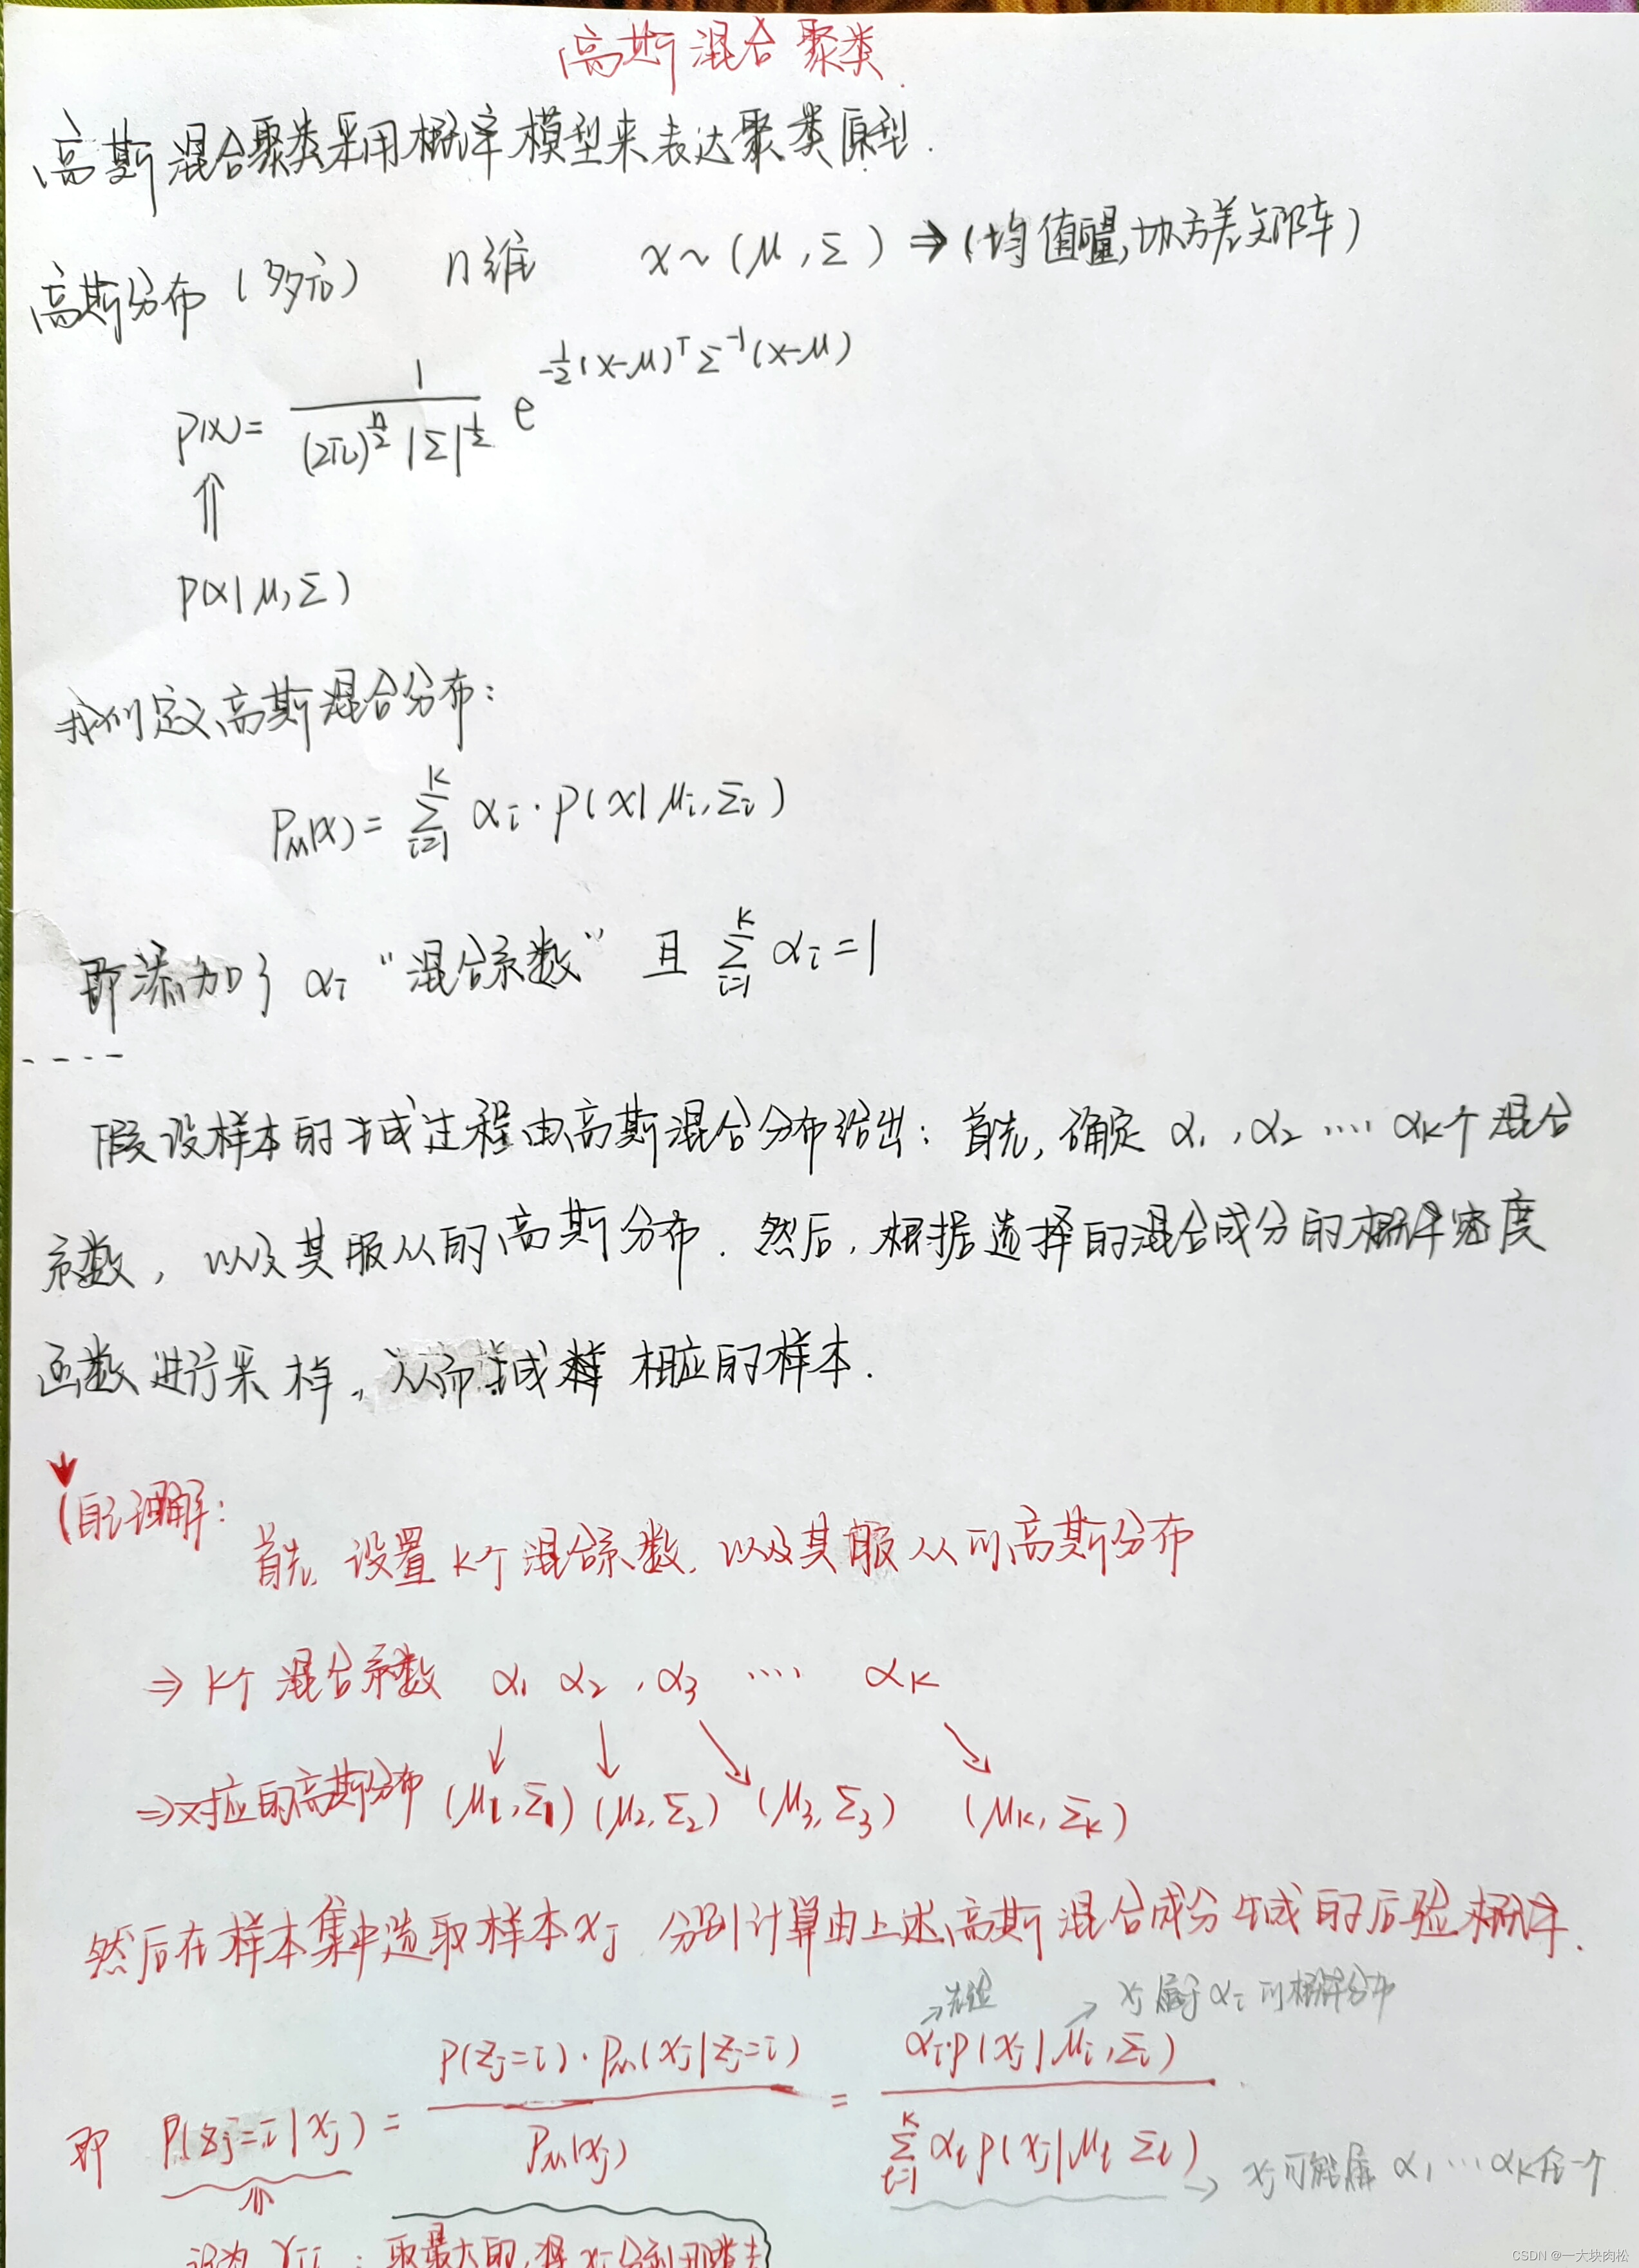 高斯混合聚类
高斯混合聚类采用概率模型来表达聚类原型.
高斯分布（多元） n维 x~(μ,Σ) ⇒(均值向量,协方差矩阵)
p(x)= 1/((2π)^(n/2) |Σ|^(1/2)) e^(-1/2(x-μ)^T Σ^-1(x-μ))
⇑
p(x|μ,Σ)
我们定义高斯混合分布:
P_M(x)= Σ_{i=1}^{K} α_i·p(x|μ_i,Σ_i)
即添加了 α_i "混合系数" 且 Σ_{i=1}^{K} α_i=1
----
假设样本的生成过程由高斯混合分布给出: 首先, 确定 α1,α2 ···· αK个混合
系数, 以及其服从的高斯分布. 然后, 根据选择的混合成分的概率密度
函数进行采样, 从而生成 相应的样本.
(自己理解:
首先, 设置K个混合系数, 以及其服从的高斯分布
⇒ K个混合系数 α1 α2,α3 ···· αK
⇒对应的高斯分布 (μ1,Σ1) (μ2,Σ2) (μ3,Σ3) (μK,ΣK)
然后在样本集中选取样本xj 分别计算由上述高斯混合成分生成的后验概率.
→先验 → xj属于αi的概率分布
即 p(zj=i|xj)= p(zj=i)·P_M(xj|zj=i) / P_M(xj) = αi·p(xj|μi,Σi) / Σ_{l=1}^{K} αl p(xj|μl Σl)
→ xj可能属 α1···αK任一个
⇑
设为 γji : 取最大的,将xj分到那类去
CSDN @一大块肉松